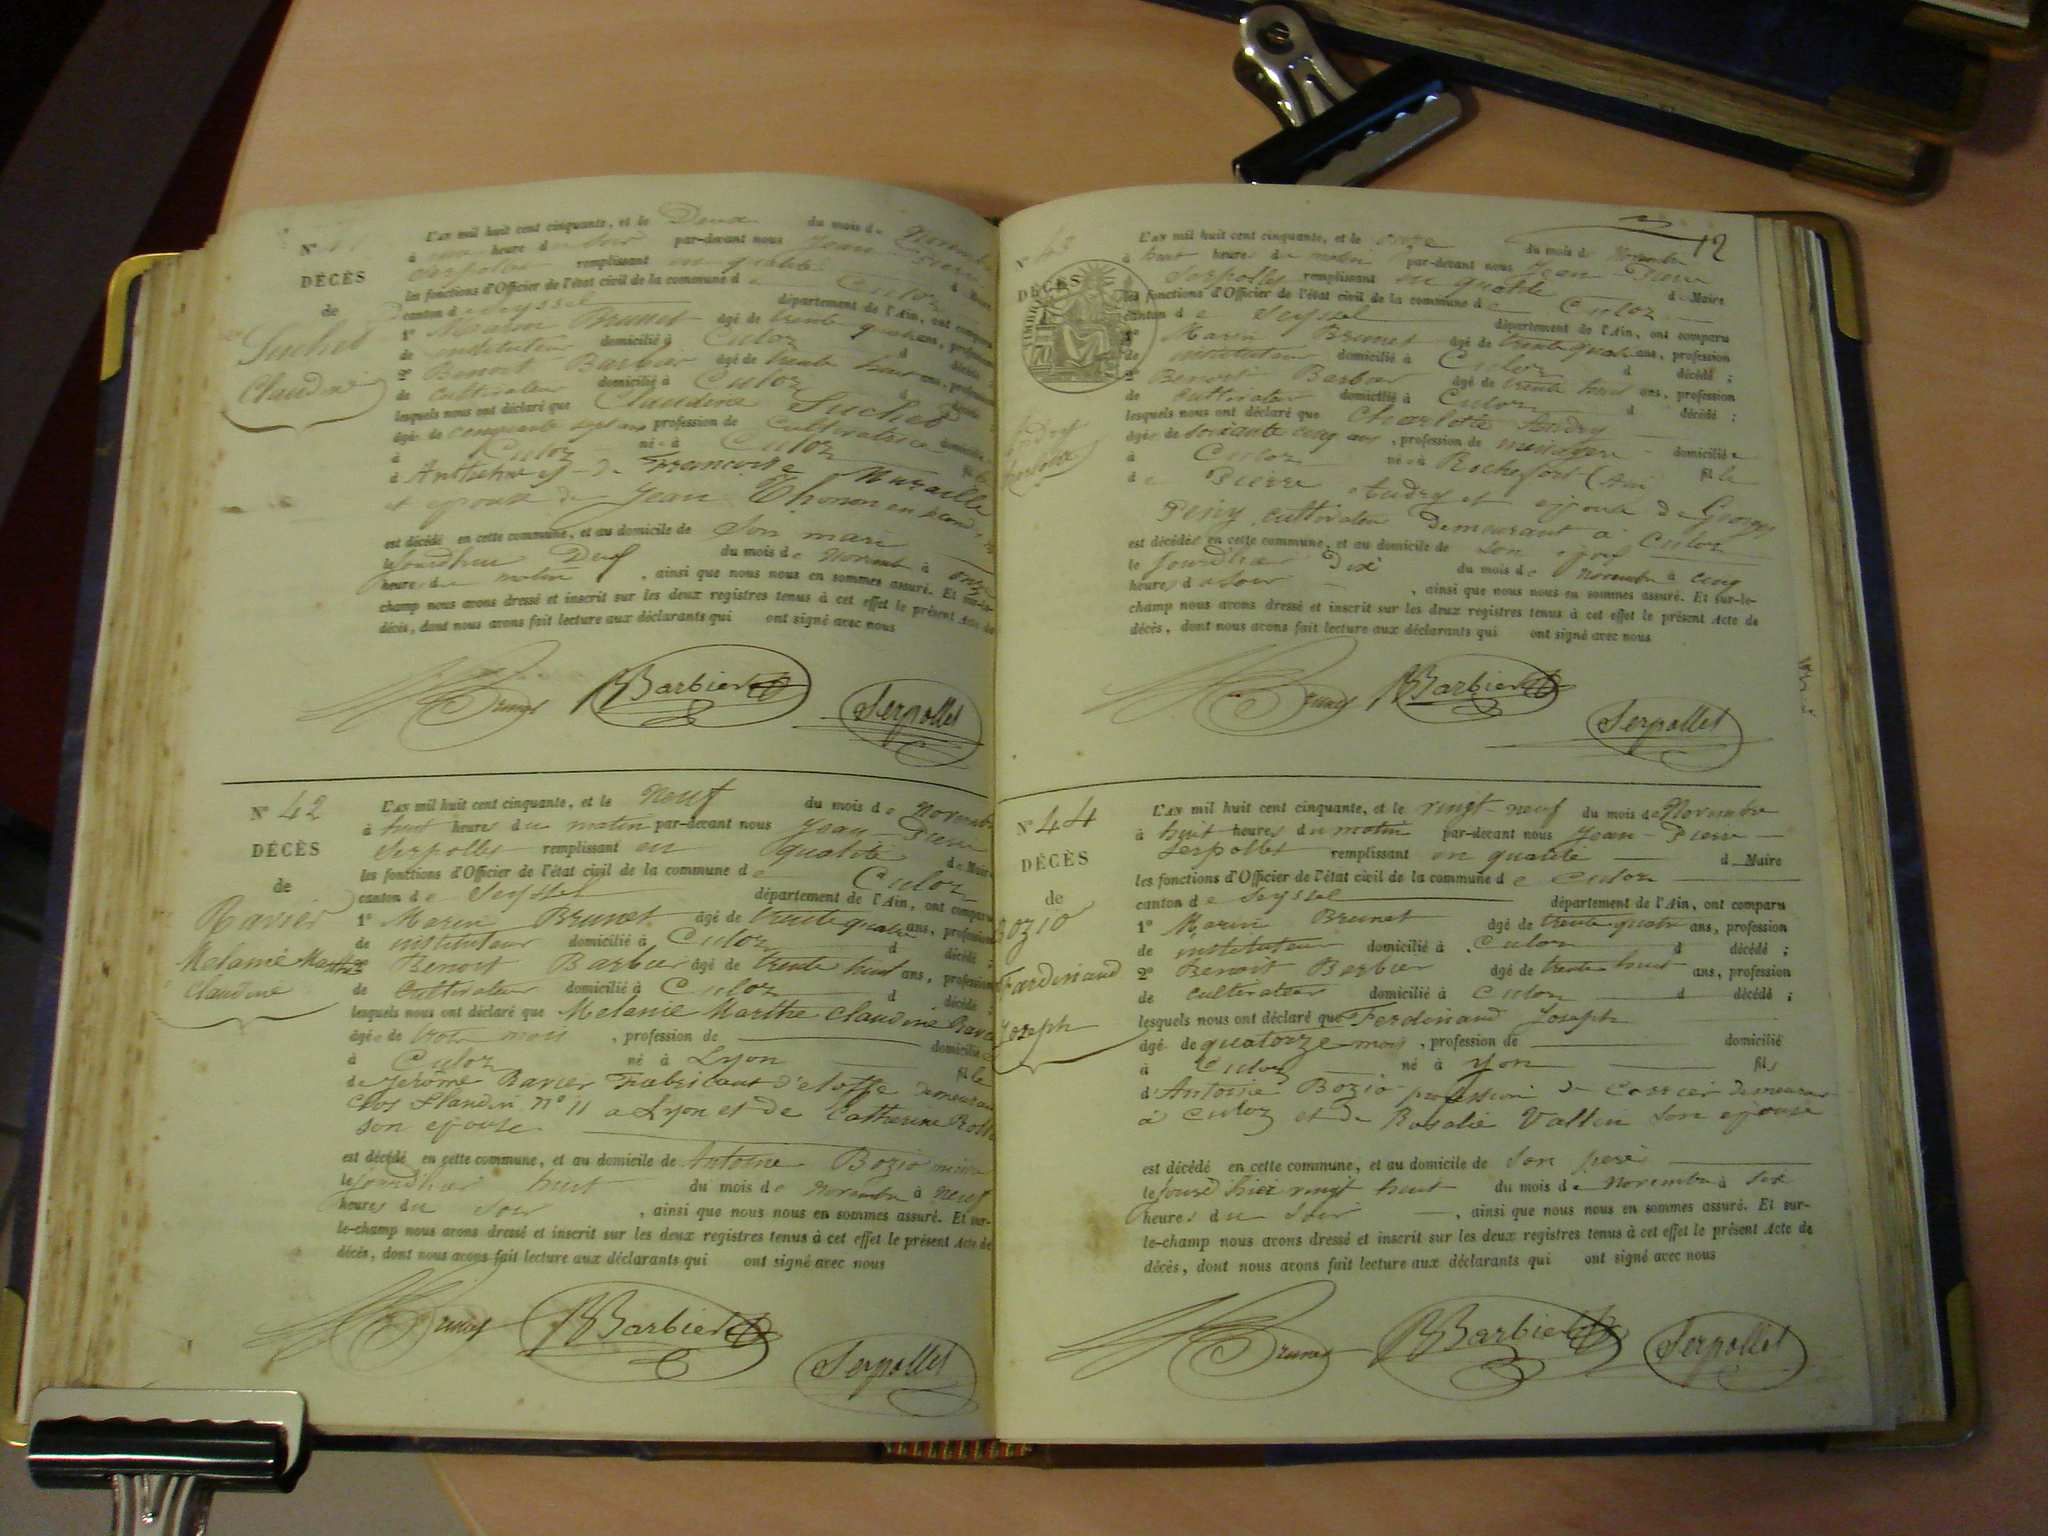 N°
DÉCÈS
de
Suchet
Claudine
L'AN mil huit cent cinquante, et le Deux du mois de Novembre
à une heure du soir par-devant nous Jean Pierre
Serpollet remplissant en qualité de Maire
les fonctions d'Officier de l'état civil de la commune de Culoz
canton de Seyssel département de l'Ain, ont comparu
1° Marin Brunet âgé de trente quatre ans, profession
de instituteur domicilié à Culoz d décédé ;
2° Benoit Barbier âgé de trente huit ans, profession
de cultivateur domicilié à Culoz d décédé ;
lesquels nous ont déclaré que Claudine Suchet
âgée de cinquante sept ans profession de Cultivatrice domiciliée
à Culoz née à Culoz fille
d'Anthelme et de Françoise Muraille
et epouse de Jean Thonon en second
est décédé en cette commune, et au domicile de Son mari
le jourdhui Deux du mois de Novemb à onze
heures du matin , ainsi que nous nous en sommes assuré. Et sur-le-
champ nous avons dressé et inscrit sur les deux registres tenus à cet effet le présent Acte de
décès, dont nous avons fait lecture aux déclarants qui ont signé avec nous
Brunet BBarbier Serpollet
N° 42
DÉCÈS
de
Ravier
Melanie Marthe
Claudine
L'AN mil huit cent cinquante, et le neuf du mois de Novembre
à huit heures du matin par-devant nous Jean-Pierre
Serpollet remplissant en qualité de Maire
les fonctions d'Officier de l'état civil de la commune de Culoz
canton de Seyssel département de l'Ain, ont comparu
1° Marin Brunet âgé de trente quatre ans, profession
de instituteur domicilié à Culoz d décédé ;
2° Benoit Barbier âgé de trente huit ans, profession
de cultivateur domicilié à Culoz d décédé ;
lesquels nous ont déclaré que Melanie Marthe Claudine Ravier
âgée de trois mois , profession de domiciliée
à Culoz né à Lyon fille
de Jerôme Ravier Fabricant d'etoffe demeurant
Clos Flandin n° 11 a Lyon et de Catherine
son epouse
est décédé en cette commune, et au domicile de Antoine Bozio
le jourdhier huit du mois de Novembre à neuf
heures du soir , ainsi que nous nous en sommes assuré. Et sur-
le-champ nous avons dressé et inscrit sur les deux registres tenus à cet effet le présent Acte de
décès, dont nous avons fait lecture aux déclarants qui ont signé avec nous
Brunet BBarbier Serpollet
12
N° 43
DÉCÈS
TIMBRE
Andry
Charlotte
L'AN mil huit cent cinquante, et le onze du mois de Novembre
à huit heures du matin par-devant nous Jean-Pierre
Serpollet remplissant en qualité de Maire
les fonctions d'Officier de l'état civil de la commune de Culoz
canton de Seyssel département de l'Ain, ont comparu
1° Marin Brunet âgé de trente quatre ans, profession
de instituteur domicilié à Culoz d décédé ;
2° Benoit Barbier âgé de trente huit ans, profession
de cultivateur domicilié à Culoz d décédé ;
lesquels nous ont déclaré que Charlotte Andry
âgée de soixante cinq ans , profession de menagere domiciliée
à Culoz née à Rochefort (Ain fille
de Pierre Andry et epouse de Georges
Peny cultivateur Demeurant à Culoz
est décédée en cette commune, et au domicile de son epoux
le jourdhier Dix du mois de Novembre à cinq
heures du soir , ainsi que nous nous en sommes assuré. Et sur-le-
champ nous avons dressé et inscrit sur les deux registres tenus à cet effet le présent Acte de
décès, dont nous avons fait lecture aux déclarants qui ont signé avec nous
Brunet BBarbier Serpollet
N° 44
DÉCÈS
de
BOZIO
Fardinand
Joseph
L'AN mil huit cent cinquante, et le vingt-neuf du mois de Novembre
à huit heures du matin par-devant nous Jean-Pierre
Serpollet remplissant en qualité de Maire
les fonctions d'Officier de l'état civil de la commune de Culoz
canton de Seyssel département de l'Ain, ont comparu
1° Marin Brunet âgé de trente quatre ans, profession
de instituteur domicilié à Culoz d décédé ;
2° Benoit Barbier âgé de trente huit ans, profession
de cultivateur domicilié à Culoz d décédé ;
lesquels nous ont déclaré que Ferdinand Joseph
âgé de quatorze mois , profession de domicilié
à Culoz né à Lyon fils
d'Antoine Bozio profession de demeurant
à Culoz et de Rosalie Vallin son epouse
est décédé en cette commune, et au domicile de son pere
le jourd'hier vingt huit du mois de Novembre à six
heures du soir , ainsi que nous nous en sommes assuré. Et sur-
le-champ nous avons dressé et inscrit sur les deux registres tenus à cet effet le présent Acte de
décès, dont nous avons fait lecture aux déclarants qui ont signé avec nous
Brunet BBarbier Serpollet